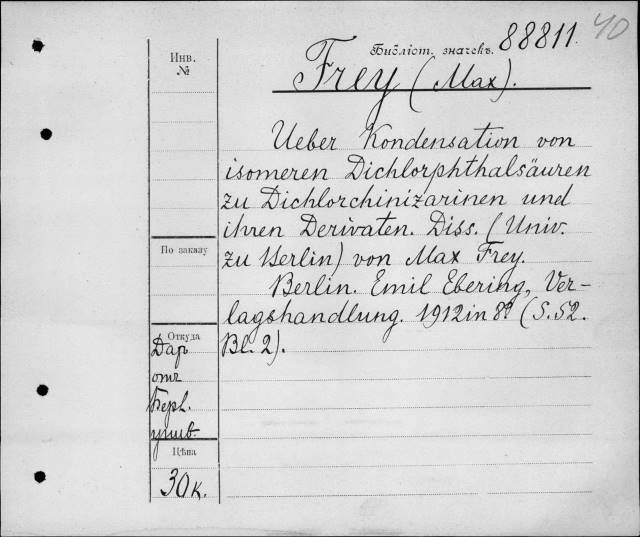 40
Библіот. значекъ. 88811.
Инв.
№
Frey (Max).
Ueber Kondensation von
isomeren Dichlorphthalsäuren
zu Dichlorchinizarinen und
ihren Derivaten. Diss. (Univ.
zu Berlin) von Max Frey.
Berlin. Emil Ebering, Ver-
lagshandlung. 1912 in 8º. (S. 52.
Bl. 2).
По заказу
Откуда
Даръ
отъ
Берл.
унив.
Цѣна
30 к.